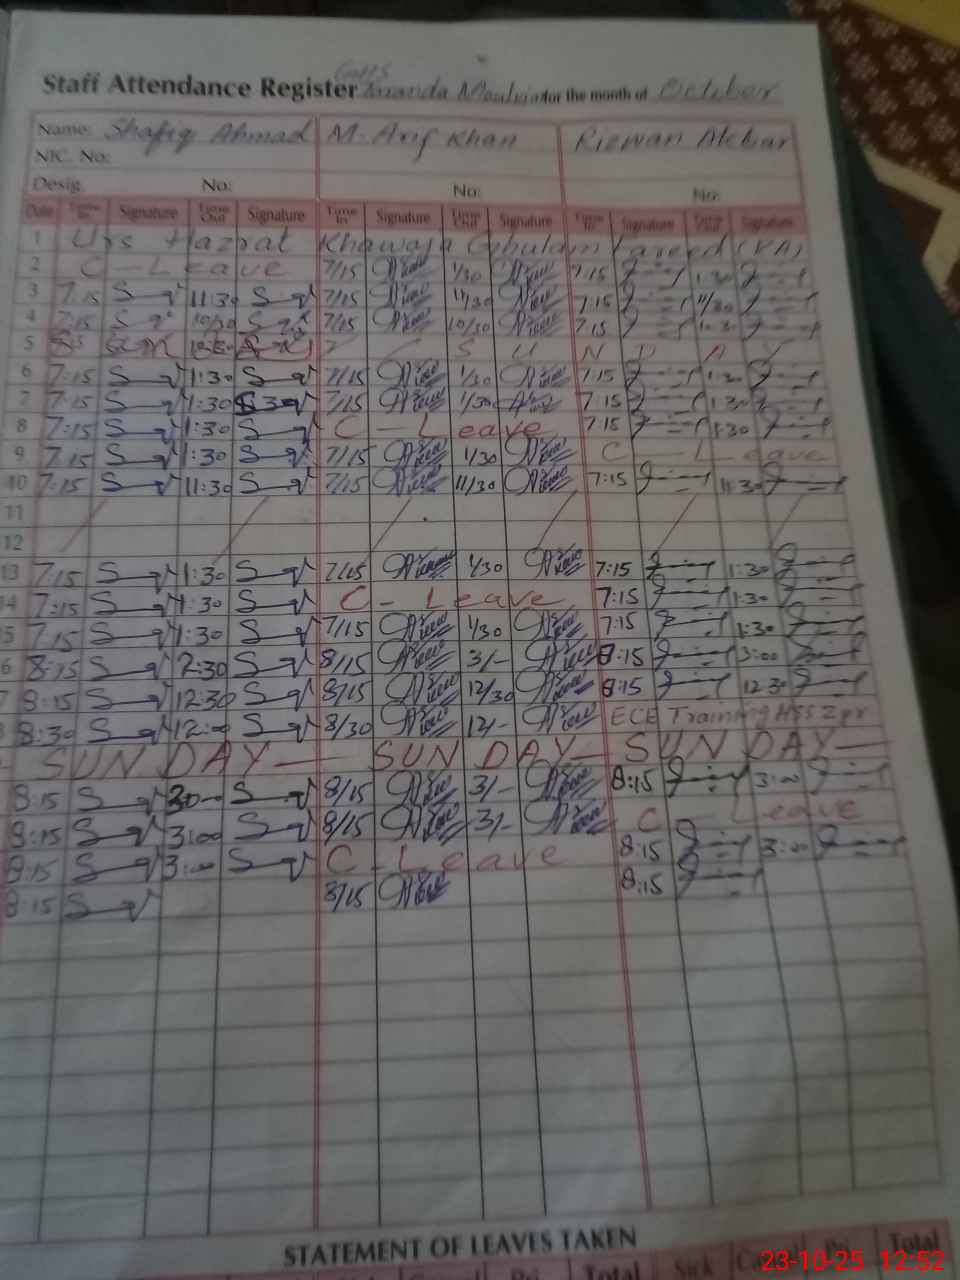 GMPS
Staff Attendance Register Taranda Moulvian for the month of October
Name: Shafiq Ahmad M. Arif Khan Rizwan Akbar
NIC. No:
Desig. No: No: No:
Date Time In Signature Time Out Signature Time In Signature Time Out Signature Time In Signature Time Out Signature
1 Urs Hazrat Khawaja Ghulam Fareed (RA)
2 C - Leave 7/15 1/30 7:15 1:30
3 7:15 11:30 7/15 11/30 7:15 11/30
4 7:15 10/30 7/15 10/30 7:15 10:30
5 S U N D A Y
6 7:15 1:30 7/15 1/30 7:15 1:30
7 7:15 1:30 7/15 1/30 7:15 1:30
8 7:15 1:30 C - Leave 7:15 1:30
9 7:15 1:30 7/15 1/30 C Leave
10 7:15 11:30 7/15 11/30 7:15 11:30
11
12
13 7:15 1:30 7/15 1/30 7:15 1:30
14 7:15 1:30 C - Leave 7:15 1:30
15 7:15 1:30 7/15 1/30 7:15 1:30
6 8:15 2:30 8/15 3/- 8:15 3:00
7 8:15 12:30 8/15 12/30 8:15 12:30
8 8:30 12:00 8/30 12/- ECE Training HSS Zpr
SUNDAY SUNDAY SUNDAY
8:15 8/15 3/- 8:15 3:00
8:15 3:00 8/15 3/- C Leave
8:15 3:00 C - Leave 8:15 3:00
8:15 8/15 8:15
STATEMENT OF LEAVES TAKEN
Total Sick Total
23-10-25 12:52